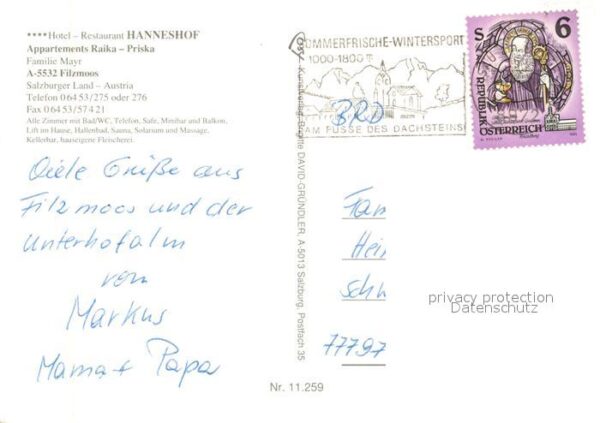 ****Hotel – Restaurant HANNESHOF
Appartements Raika – Priska
Familie Mayr
A-5532 Filzmoos
Salzburger Land – Austria
Telefon 0 64 53/275 oder 276
Fax 0 64 53/574 21
Alle Zimmer mit Bad/WC, Telefon, Safe, Minibar und Balkon,
Lift im Hause, Hallenbad, Sauna, Solarium und Massage,
Kellerbar, hauseigene Fleischerei.
Viele Grüße aus
Filzmoos und der
Unterhofalm
von
Markus
Mama + Papa
Kunstverlag Brigitte DAVID-GRÜNDLER, A-5013 Salzburg, Postfach 35
Nr. 11.259
SOMMERFRISCHE-WINTERSPORT
1000-1800
AM FUSSE DES DACHSTEINS
S 6
REPUBLIK
ÖSTERREICH
BRD
Fam
Hei
Sch
77797
privacy protection
Datenschutz